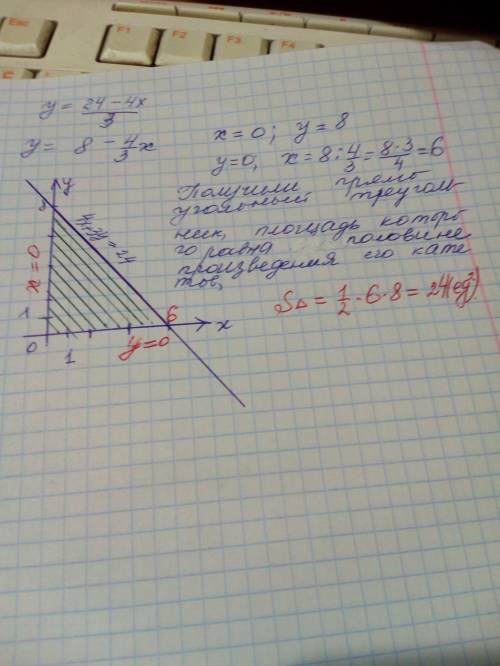 Esc
F1
F2
F3
F4
y = 24 - 4x / 3
y = 8 - 4/3 x
x = 0; y = 8
y=0, x = 8 : 4/3 = 8·3/4 = 6
Получили прямо
угольный треуголь
ник, площадь которо
го равна половине
произведения его кате
тов,
S△ = 1/2 · 6 · 8 = 24 (ед²)
y
4x+3y=24
x=0
1
6
x
0
1
y=0